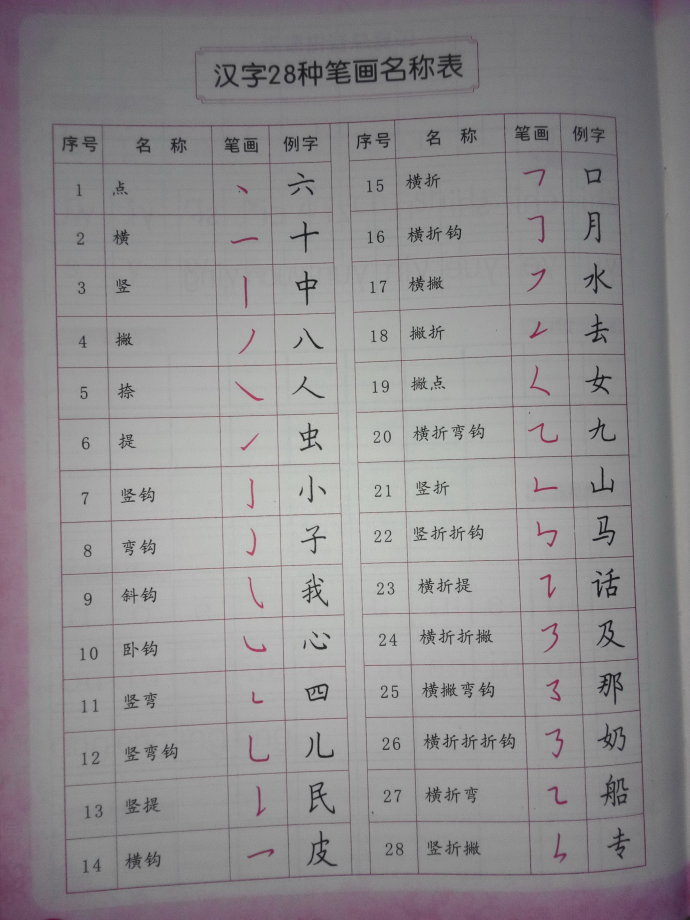 汉字28种笔画名称表
序号 名称 笔画 例字
1 点 ㇔ 六
2 横 ㇐ 十
3 竖 ㇑ 中
4 撇 ㇒ 八
5 捺 ㇏ 人
6 提 ㇀ 虫
7 竖钩 ㇚ 小
8 弯钩 ㇁ 子
9 斜钩 ㇂ 我
10 卧钩 ㇃ 心
11 竖弯 ㇄ 四
12 竖弯钩 ㇟ 儿
13 竖提 ㇙ 民
14 横钩 ㇖ 皮
序号 名称 笔画 例字
15 横折 ㇕ 口
16 横折钩 ㇆ 月
17 横撇 ㇇ 水
18 撇折 ㇜ 去
19 撇点 ㇛ 女
20 横折弯钩 ㇈ 九
21 竖折 ㇗ 山
22 竖折折钩 ㇉ 马
23 横折提 ㇊ 话
24 横折折撇 ㇋ 及
25 横撇弯钩 ㇌ 那
26 横折折折钩 ㇡ 奶
27 横折弯 ㇍ 船
28 竖折撇 ㇞ 专